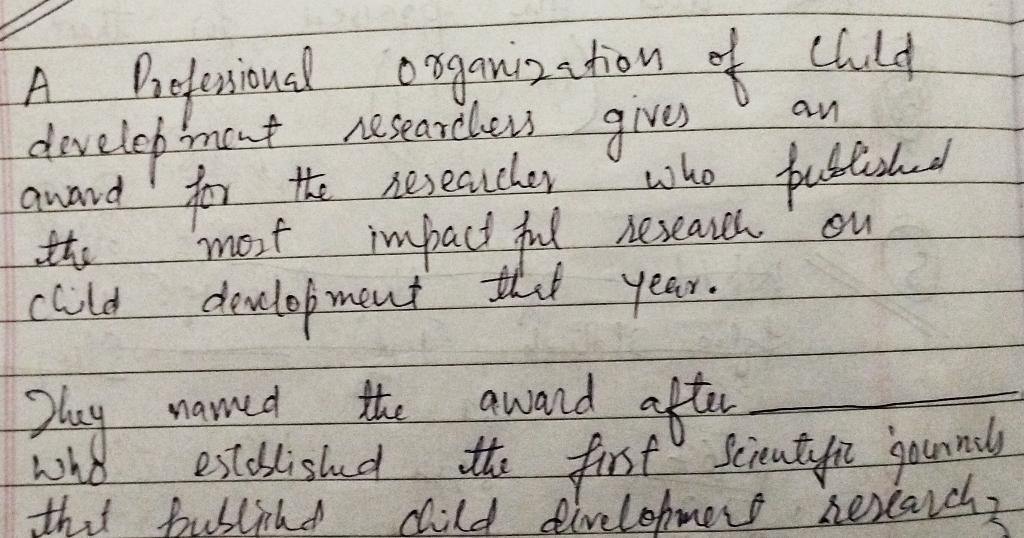 A Professional organization of child
development researchers gives an
award for the researcher who published
the most impactful research on
child development that year.
They named the award after ______
who established the first scientific journals
that published child development research?